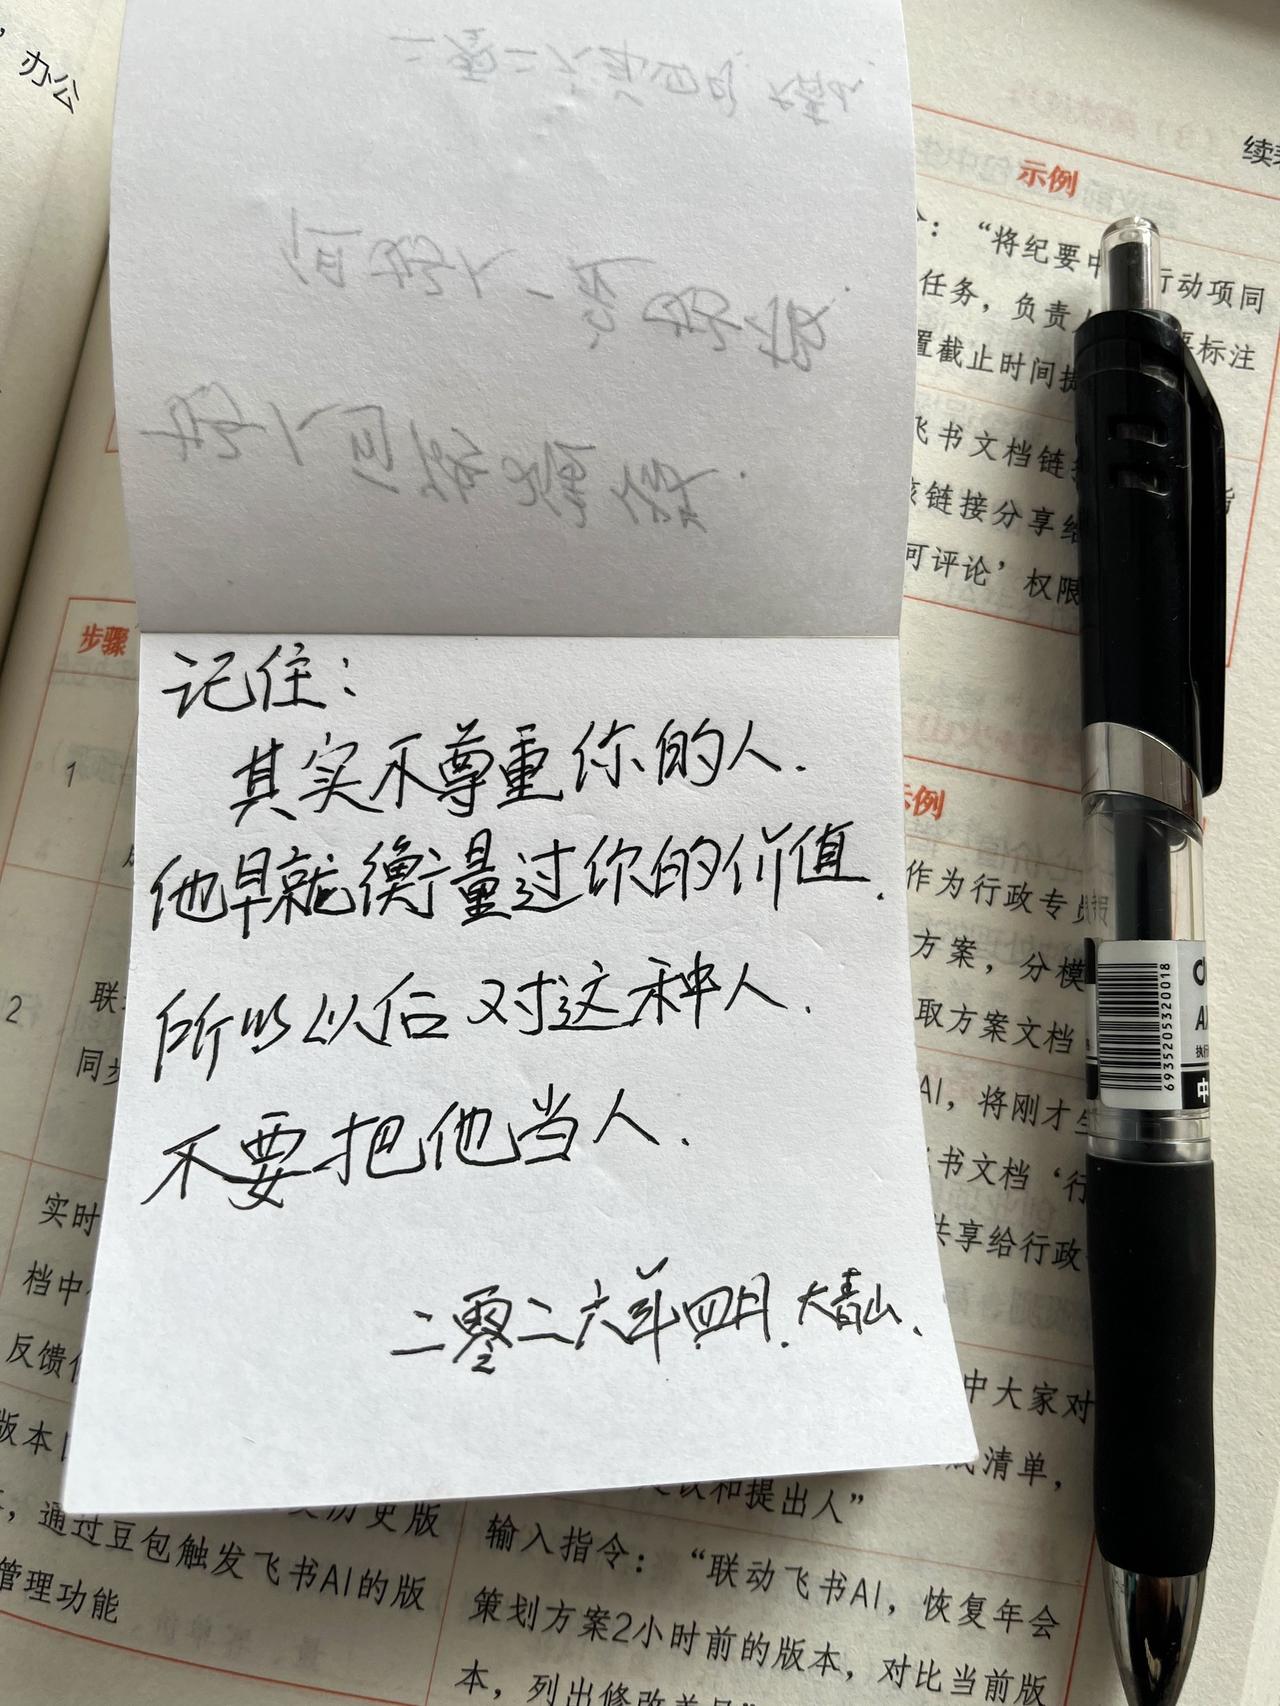 办公
续表
示例
：“将纪要中 行动项同
任务，负责人 标注
置截止时间提
飞书文档链接
该链接分享给
可评论’权限
步骤
1
记住：
其实不尊重你的人.
他早就衡量过你的价值.
所以以后对这种人.
不要把他当人.
二零二六年四月.大青山.
示例
作为行政专员
方案，分模
取方案文档
AI，将刚才生
书文档‘行
共享给行政
中大家对
清单，
议和提出人”
输入指令：“联动飞书AI，恢复年会
策划方案2小时前的版本，对比当前版
本，列出修改差异”
2
联
同步
实时
档中
反馈
版本
历史版
，通过豆包触发飞书AI的版
管理功能
6935205320018
执行
中